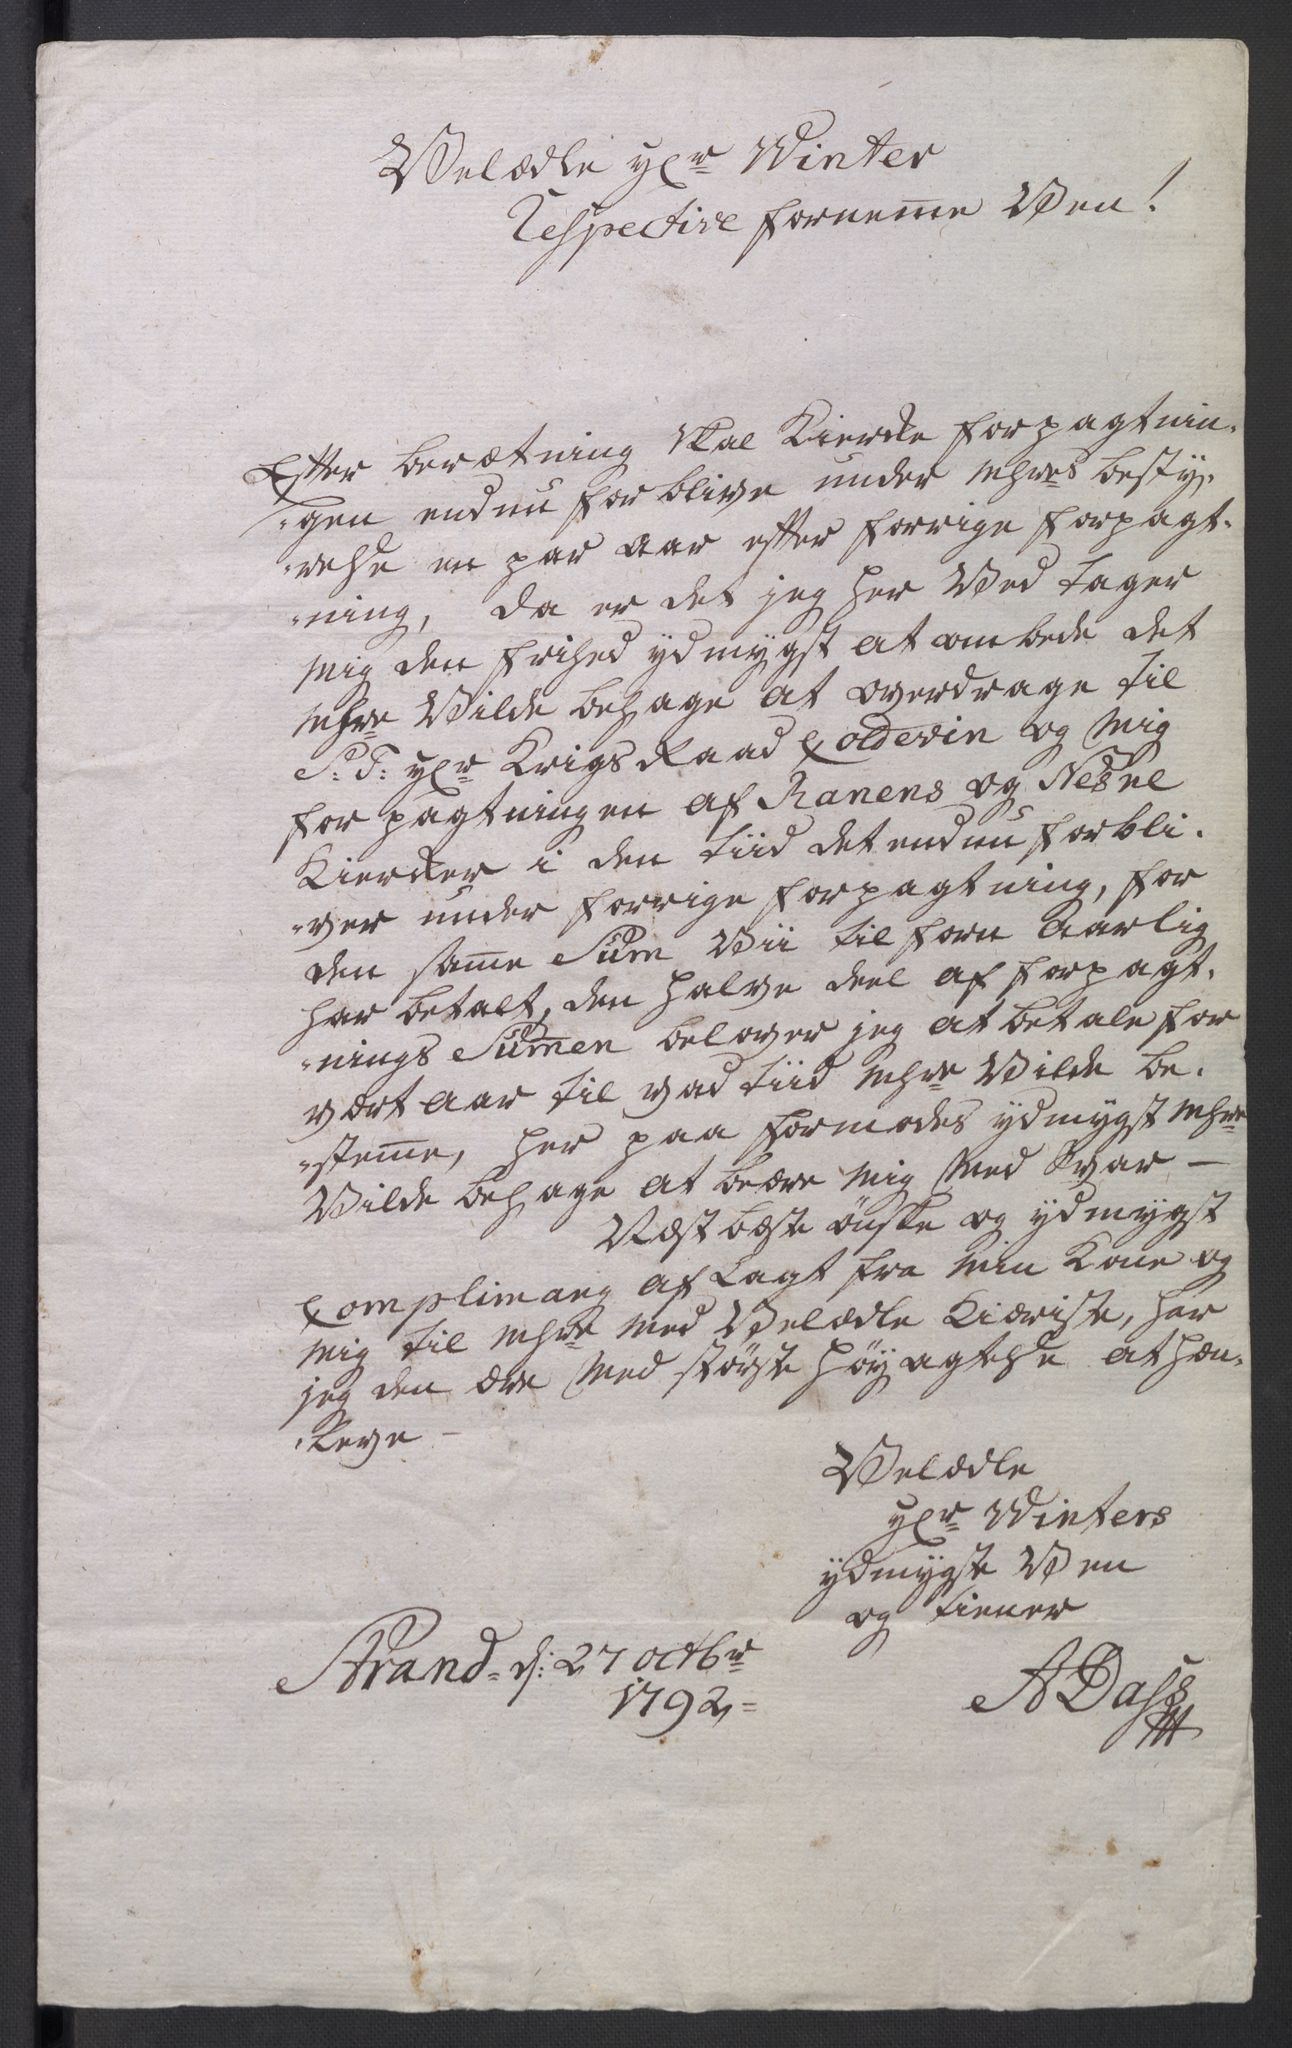 Velædle Hr Winter
Respective fornemme Ven!
Efter beretning skal Kierke forpagtnin-
-gen endnu forblive under Mhrs besty-
-relse en par aar efter forrige forpagt-
-ning, da er det jeg her ved tager
mig den frihed ydmygst at ombede det
Mhr vilde behage at overdrage til
S: T: Hr Krigs Raad Coldevin og mig
forpagtningen af Ranens og Nesne
Kierker i den tiid det endnu forbli-
-ver under forrige forpagtning, for
den samme Sum vii tilforn aarlig
har betalt, den halve deel af forpagt-
-nings Summen belover jeg at betale for
vært aar til vad tiid Mhr vilde be-
-stemme, her paa formodes ydmygst Mhr
vilde behage at beære mig med Svar —
Næst beste ønske og ydmygst
Complimang aflagt fra min Kone og
mig til Mhr med Velædle Kiæriste, har
jeg den ære med største höyagtelse at hen-
-leve —
Velædle
Hr Winters
ydmygste Ven
og tiener
Strand d: 27 octbr
1792
ADass